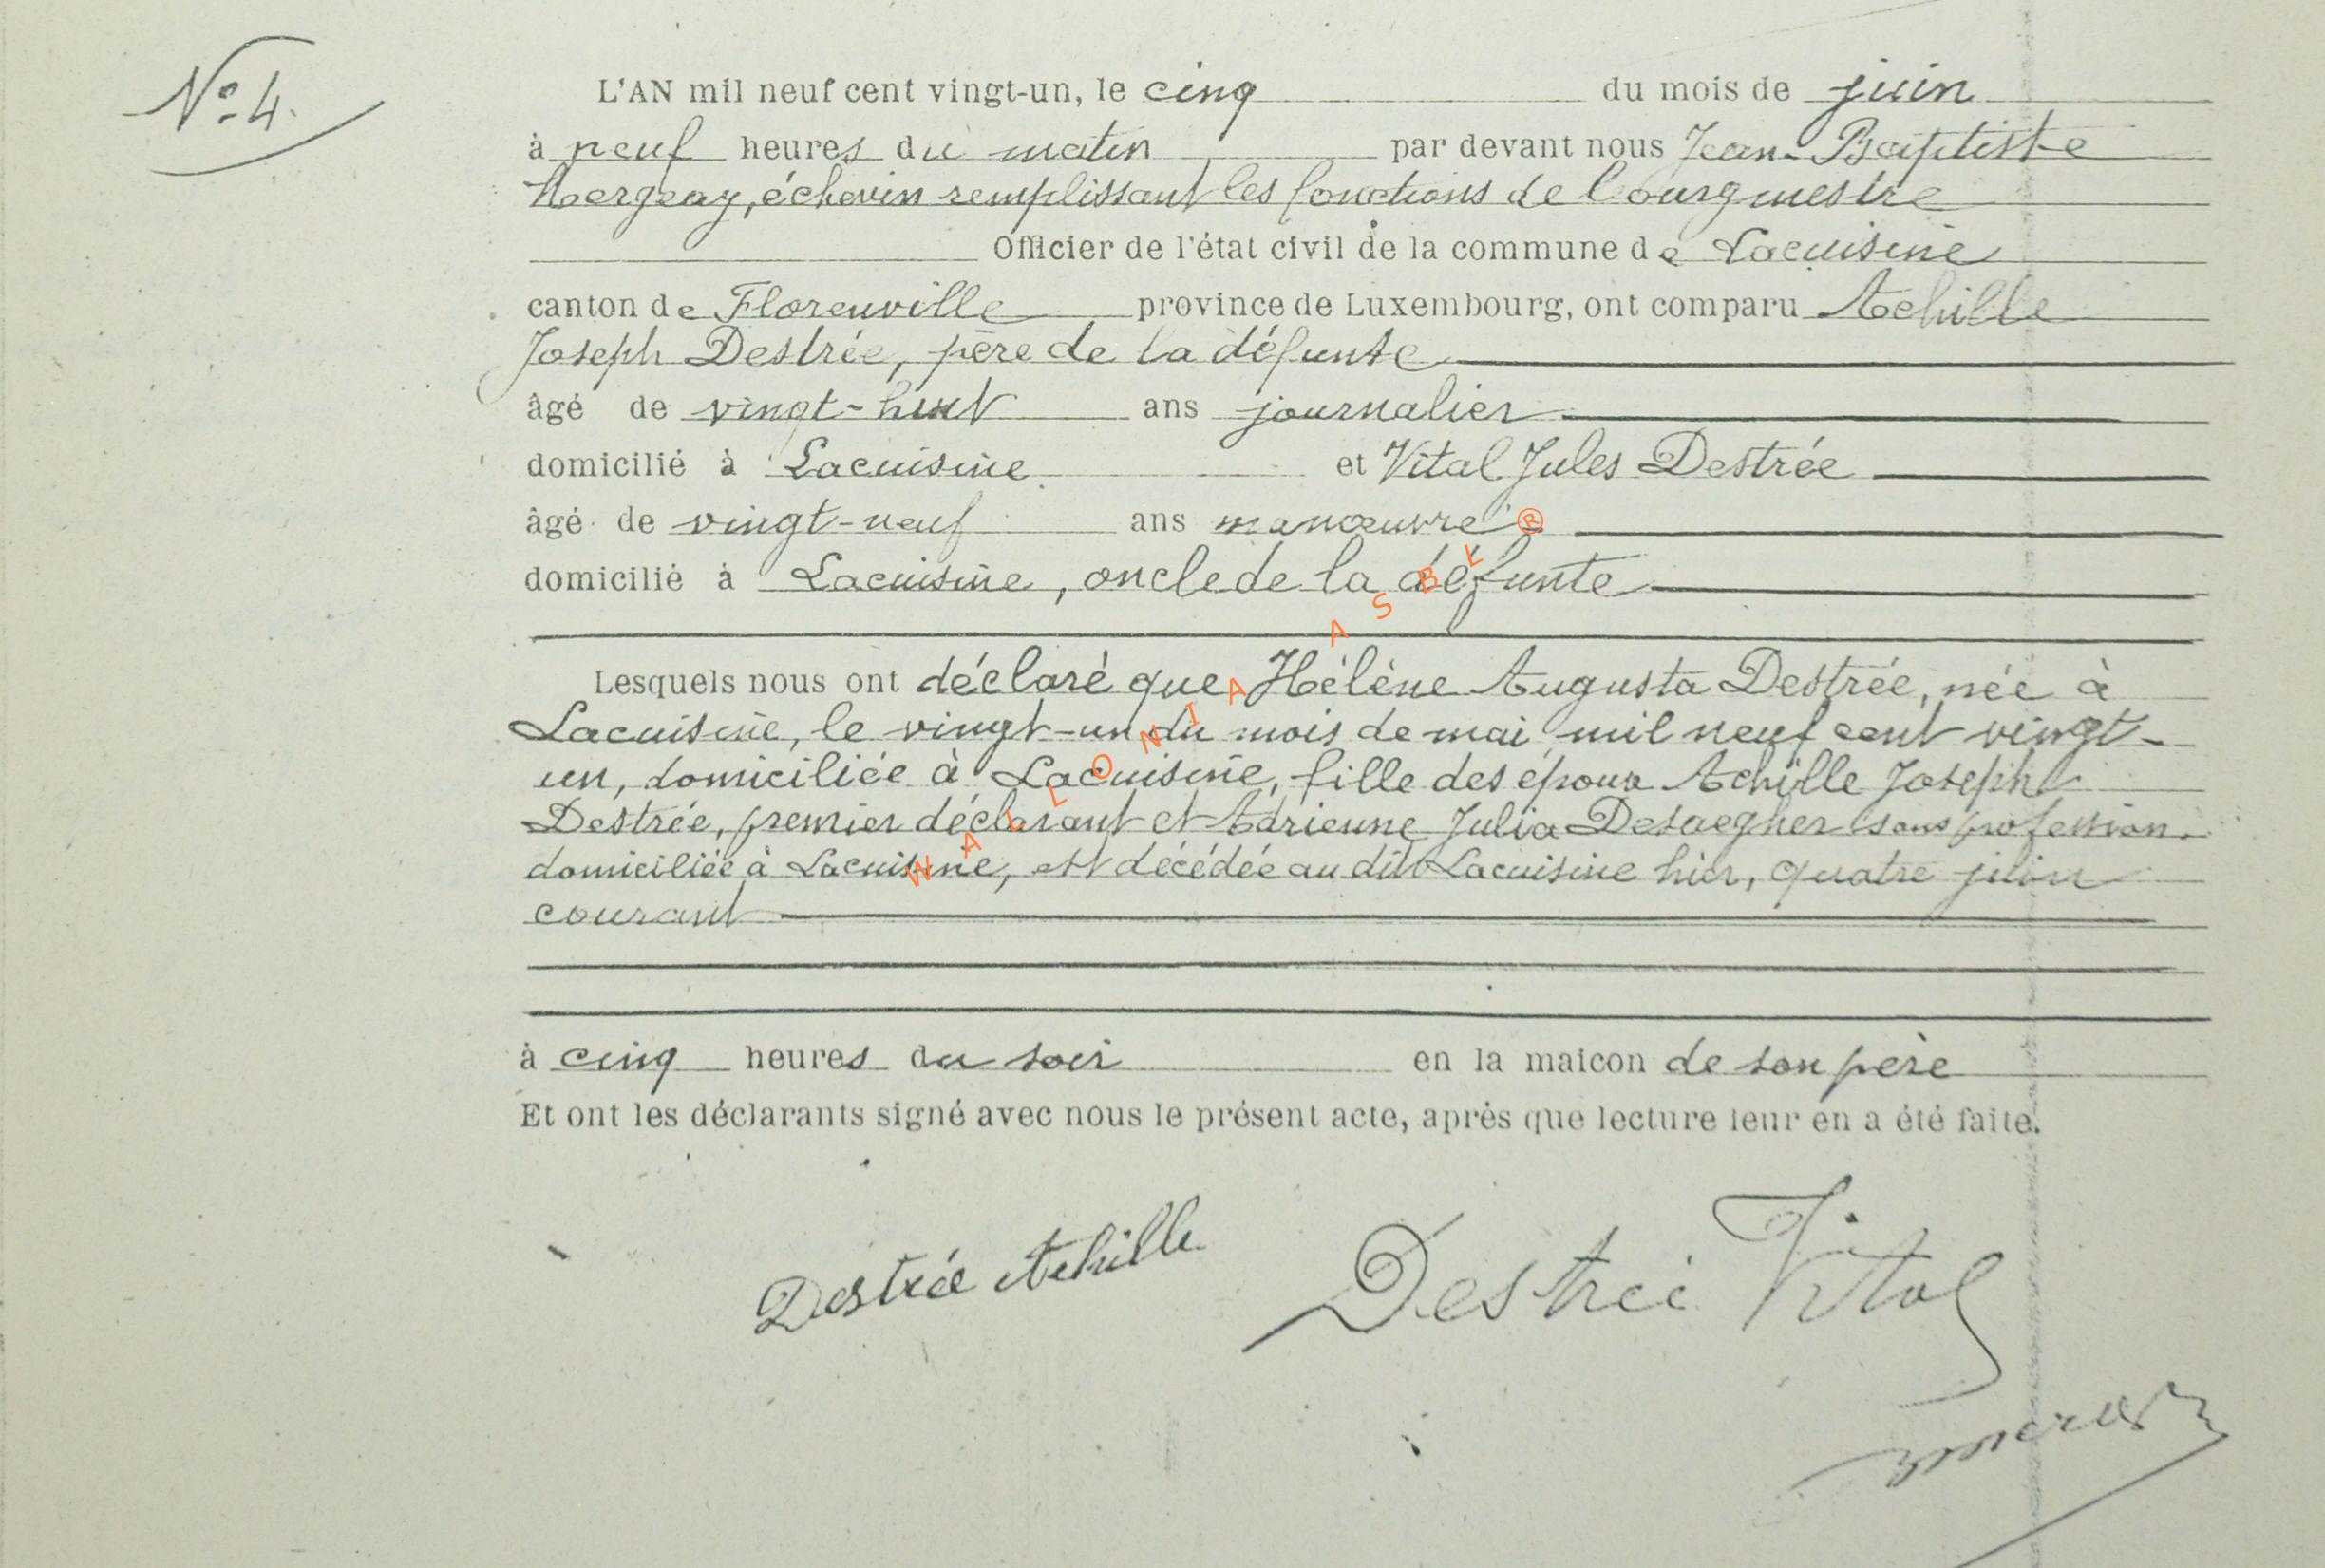 N° 4.
L'AN mil neuf cent vingt-un, le cinq du mois de juin
à neuf heures du matin par devant nous Jean-Baptiste
échevin remplissant les fonctions de bourgmestre
Officier de l'état civil de la commune de Lacuisine
canton de Florenville province de Luxembourg, ont comparu Achille
Joseph Destrée, père de la défunte
âgé de vingt-huit ans journalier
domicilié à Lacuisine et Vital Jules Destrée
âgé de vingt-neuf ans manœuvre ®
domicilié à Lacuisine, oncle de la défunte
Lesquels nous ont déclaré que Hélène Augusta Destrée, née à
Lacuisine, le vingt-un du mois de mai mil neuf cent vingt-
un, domiciliée à Lacuisine, fille des époux Achille Joseph
Destrée, premier déclarant et Adrienne Julia Desaegher sans profession.
domiciliée à Lacuisine, est décédée au dit Lacuisine hier, quatre juin
courant
à cinq heures du soir en la maicon de son père
Et ont les déclarants signé avec nous le présent acte, après que lecture leur en a été faite.
Destrée Achille
Destrée Vital
WALLONIA ASBL